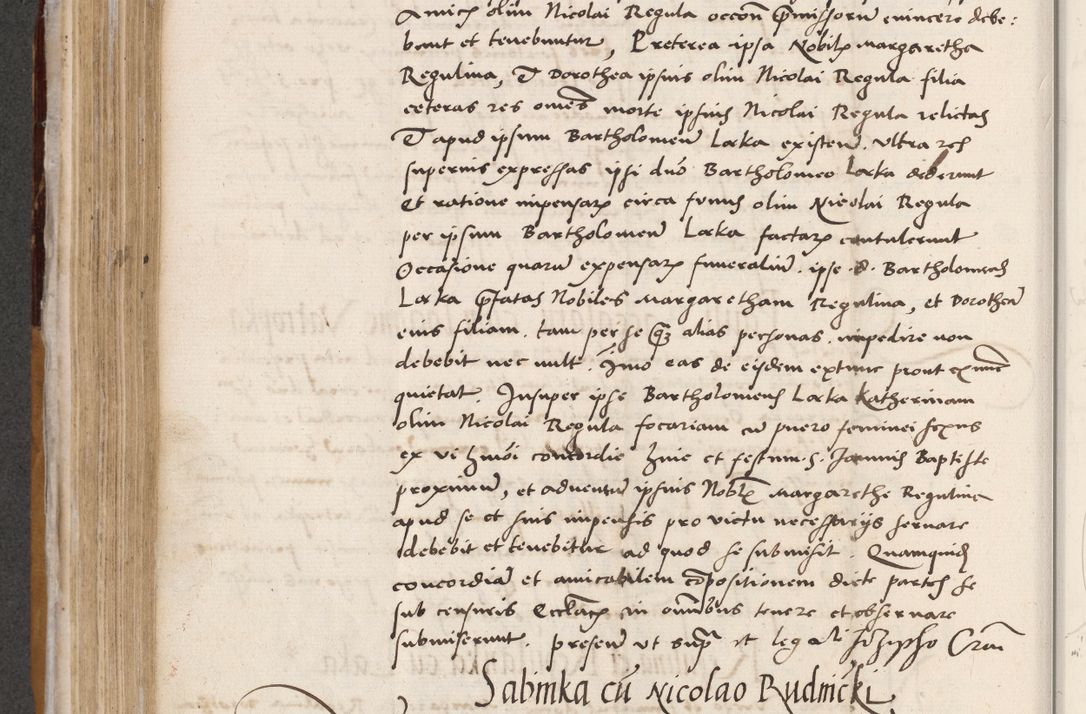 Amicꝫ olim Nicolai Regula occoñ p̃missoru evincere debe:
bant et tenebuntur, Preterea ipsa Nobilꝫ Margaretha
Regulina, Et Dorothea ipsius olim Nicolai Regula filia
ceteras res omēs morte ipsius Nicolai Regula relictas
Et apud ipsum Bartholomeū Larka existeñ. Ultra res
superius expressas ipsi dnō Bartholomeo Larka dederunt
Et ratione impensarꝫ circa funus olim Nicolai Regula
per ipsum Bartholomeū Larka factarꝫ contulerunt
Occasione quarū expensarꝫ funeraliū. ipse .d. Bartholomeus
Larka p̃fatas Nobiles Margaretham Regulina, et Dorotheā
eius filiam. tam per se q̃ꝫ alias personas. impedire non
debebit nec vult. Imo eas de eisdem extunc prout ex nunc
quietat. Insuper ipse Bartholomeus Larka Katherinam
olim Nicolai Regula focariam cū puero feminei sexus
ex vi hmōi concordie hinc et festum .S. Joannis Baptiste
proximum, et adventum ipsius Nobꝫ Margarethe Reguline
apud se et suis impensis pro victu necessarijs servare
debebit et tenebitur ad quod se submisit. Quamquidē
concordiā et amicabilem cōpositionem dicte partes se
sub censuris Eccl̃iacꝫ in om̃ibus tenere et observare
submiserunt. presen̄ ut supꝛ et
Sabinka cū Nicolao Rudnicki